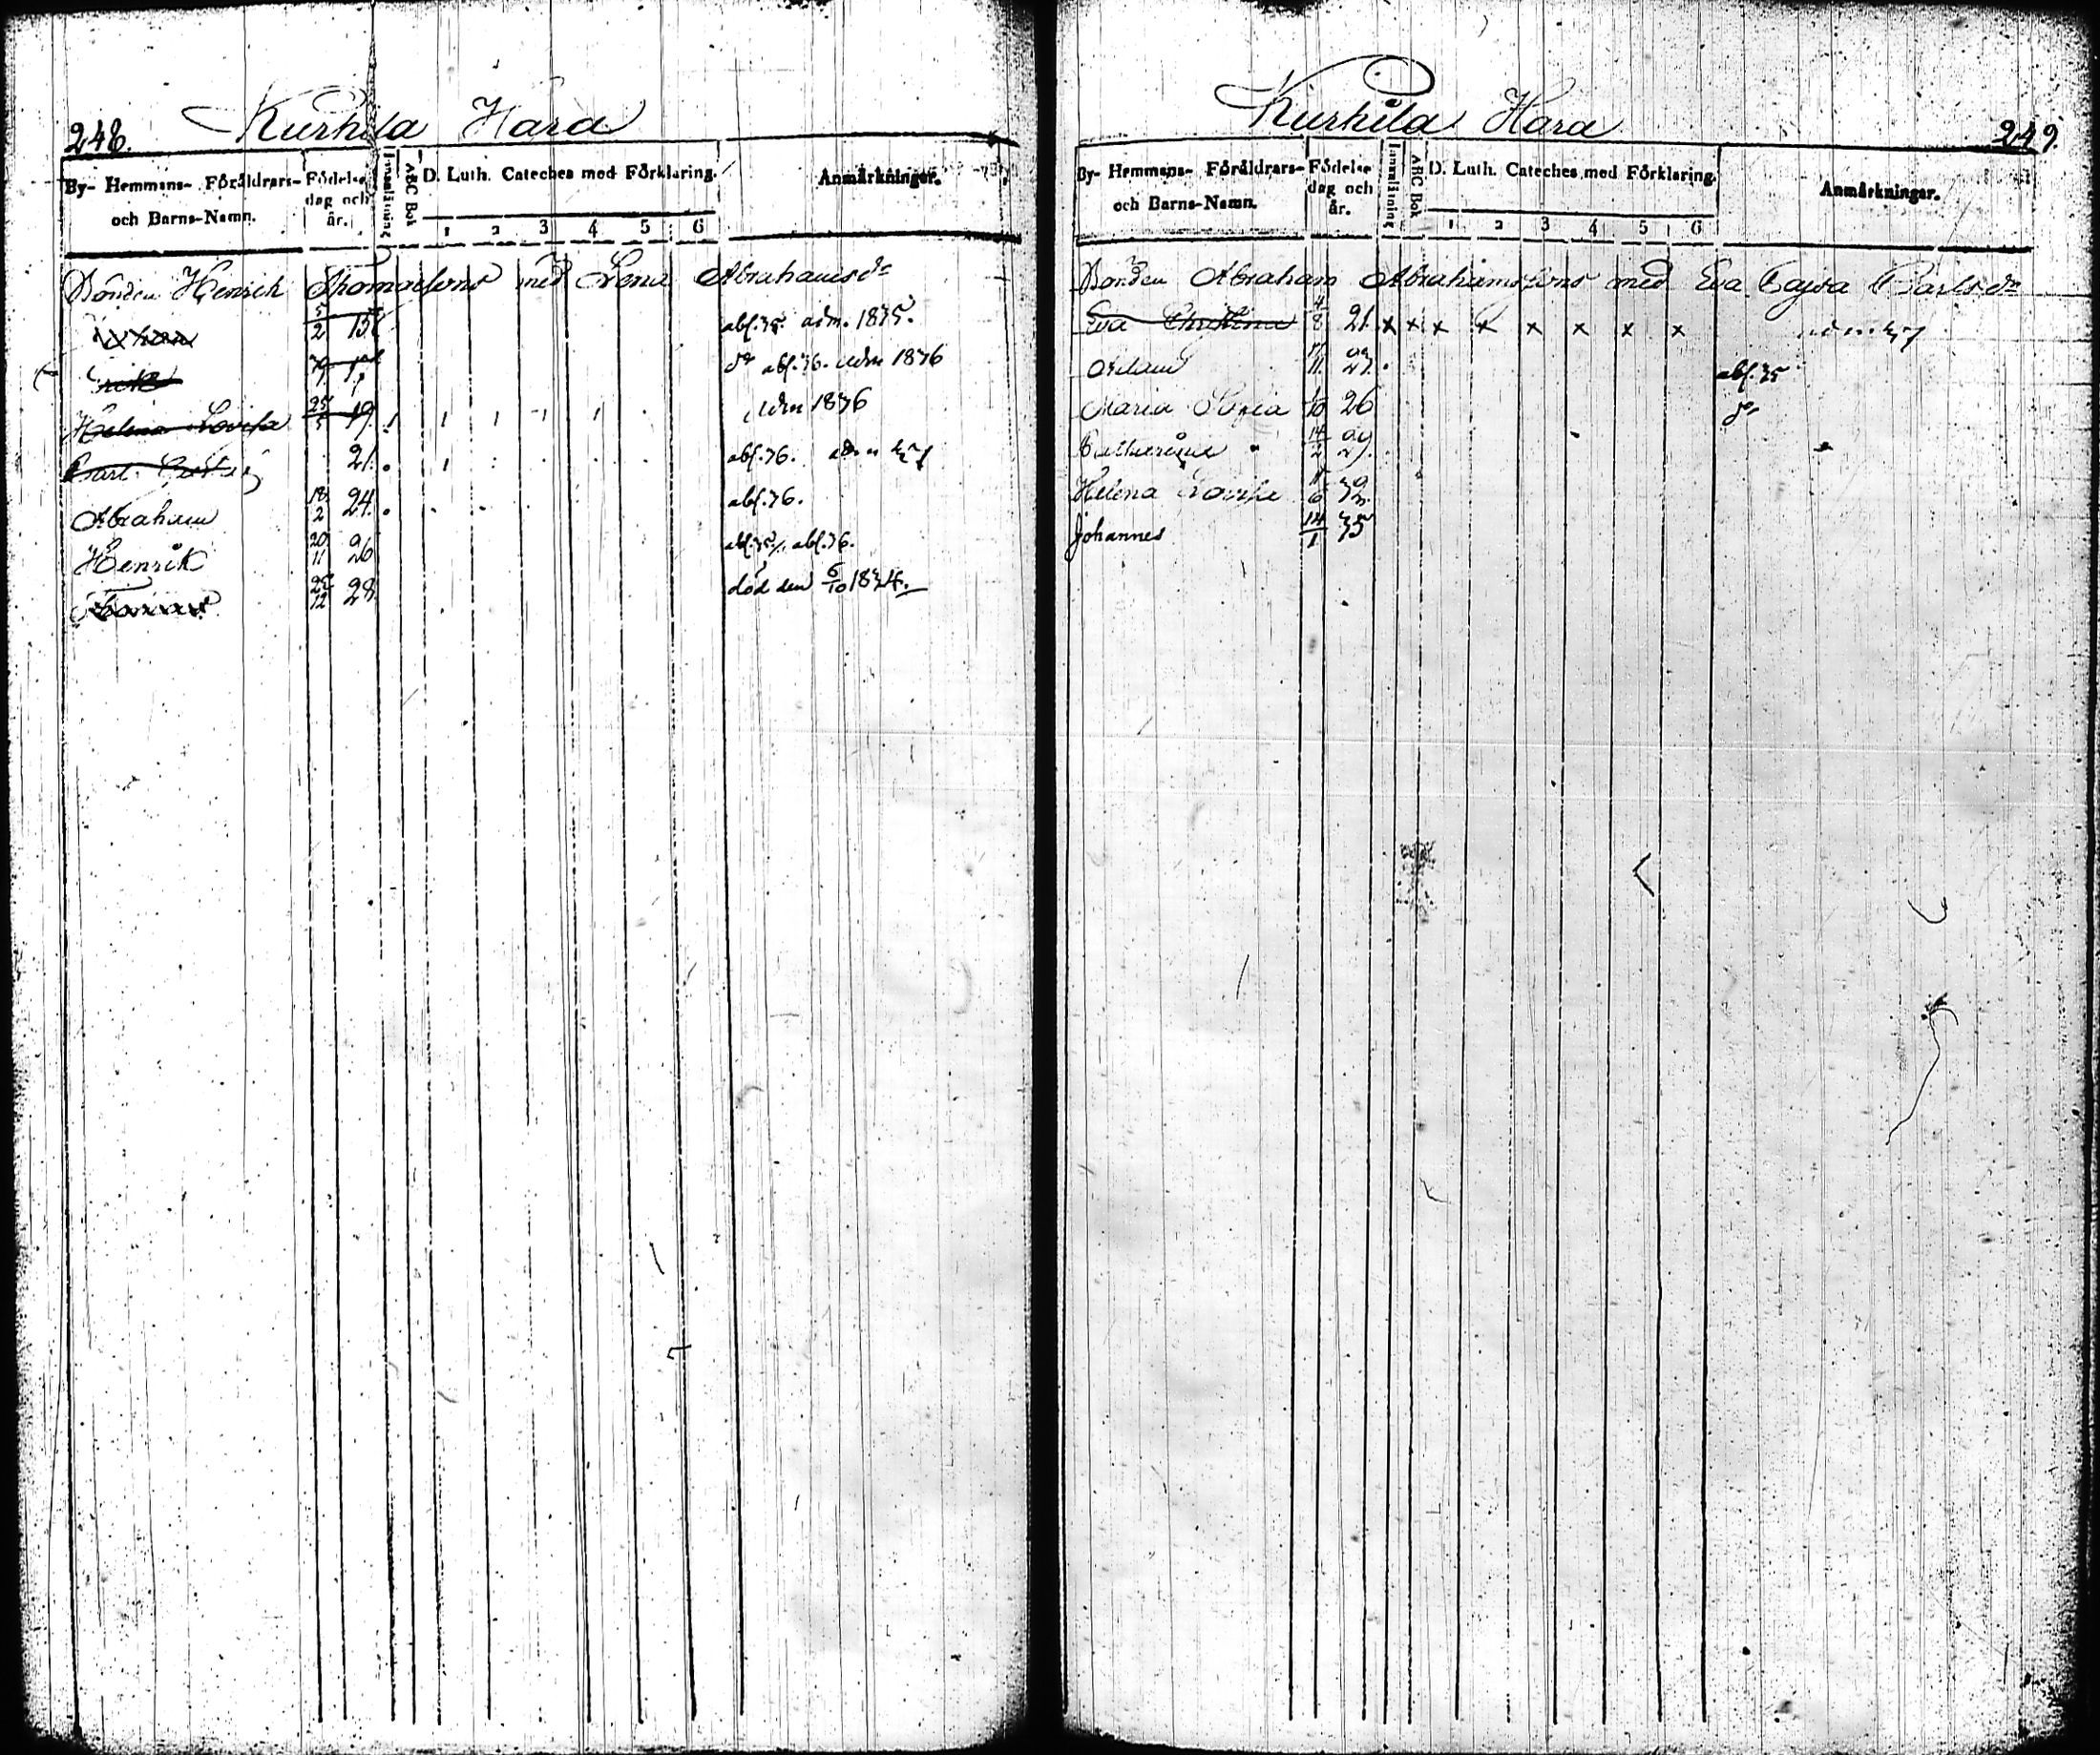 248.
Kurhila Hara
By- Hemmans- Föräldrars- och Barns-Namn. Födelse dag och år. Innanläsning ABC Bok D. Luth. Cateches med Förklaring. Anmärkningar.
1 2 3 4 5 6
Bonden Henrich Thomassons med Lena Abrahamsdr
5/2 15 abs. 35 adm. 1835.
abs. 36. adm 1836
Helena Lovisa 25/5 19 adm 1836
Carl 21. abs. 36.
Abraham 18/2 24. abs. 36.
Henrik 20/11 26 abs. 35/. abs. 36.
25/12 28 död den 6/10 1834.
Kurhila Hara
249.
By- Hemmans- Föräldrars- och Barns-Namn. Födelse dag och år. Innanläsning ABC Bok D. Luth. Cateches med Förklaring. Anmärkningar.
1 2 3 4 5 6
Bonden Abraham Abrahamssons med Eva Cajsa Carlsdr
Eva Christina 4/8 21. x x x x x x x x
Adam abs. 35
Maria Sofia 1/10 26 do
Catharina 14/2 29.
Helena Lovisa
Johannes 14/1 35